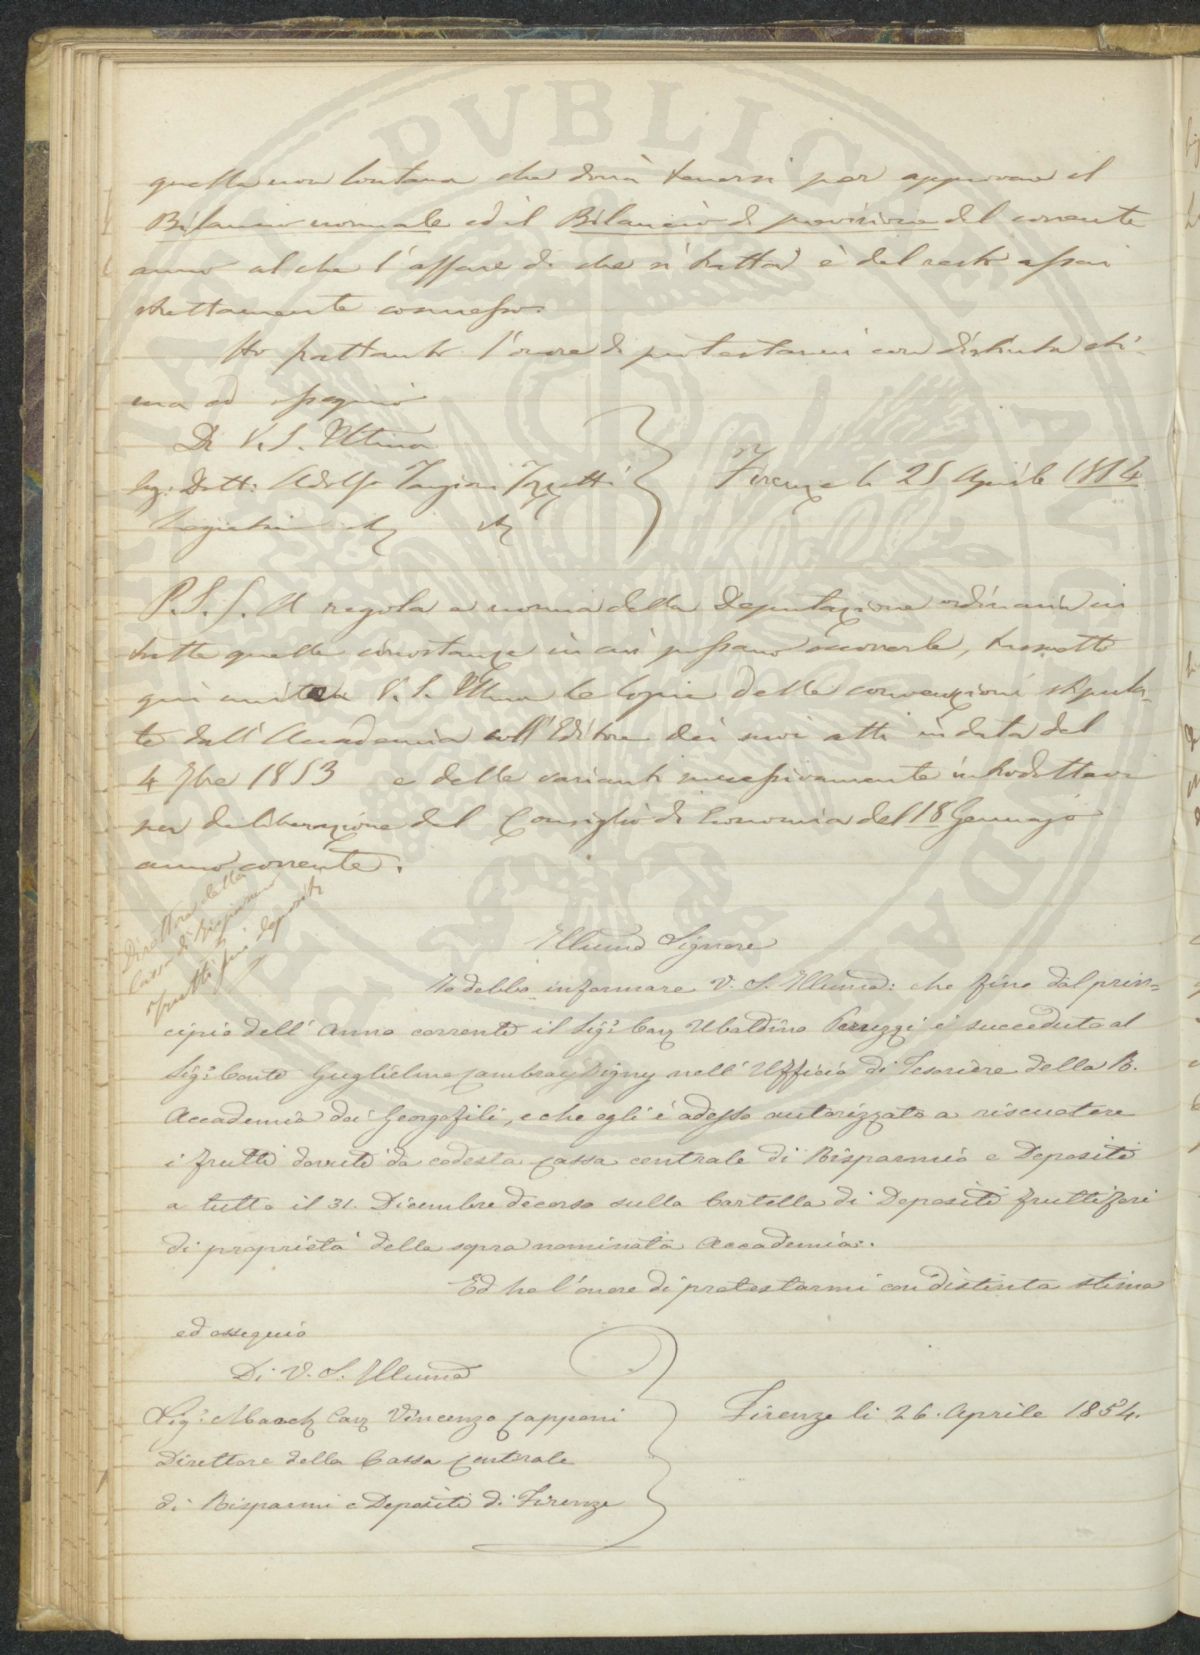 quella non lontana che dovrà tenersi per approvare il
Bilancio normale ed il Bilancio di previsione del corrente
anno al che l'affare di che si tratta è del resto assai
strettamente connesso.
Ho frattanto l'onore di protestarmi con distinta sti-
ma ed ossequio
Di V. S. Ill.ma
Sig: Dott: Adolfo Targioni Tozzetti
Firenze li 25 Aprile 1854
P.S. A regola e norma della Deputazione ordinaria in
tutte quelle circostanze in cui possano occorrerle, trasmetto
qui unite a V. S. Ill.ma le copie delle convenzioni stipula-
te dall'Accademia coll'Editore dei suoi atti in data del
4 7bre 1853 e delle varianti successivamente introdottevi
per deliberazione del Consiglio di Economia del 18 Gennajo
anno corrente.
Direttore della
Cassa di Risparmio
frutti pei depositi
Illumo Signore
Io debbo informare V. S. Illuma: che fino dal prin=
cipio dell'anno corrente il Sig.r Cav Ubaldino Peruzzi è succeduto al
Sig.r Conte Guglielmo Cambray Digny nell'Ufficio di Tesoriere della R.
Accademia dei Georgofili, e che egli è adesso autorizzato a riscuotere
i frutti dovuti da codesta Cassa centrale di Risparmio e Depositi
a tutto il 31. Dicembre decorso sulla Cartella di Depositi fruttiferi
di proprietà della sopra nominata Accademia.
Ed ho l'onore di protestarmi con distinta stima
ed ossequio
Di V. S. Illuma
Sig.r March Cav Vincenzo Capponi
Direttore della Cassa Centrale
di Risparmi e Depositi di Firenze
Firenze li 26. Aprile 1854.